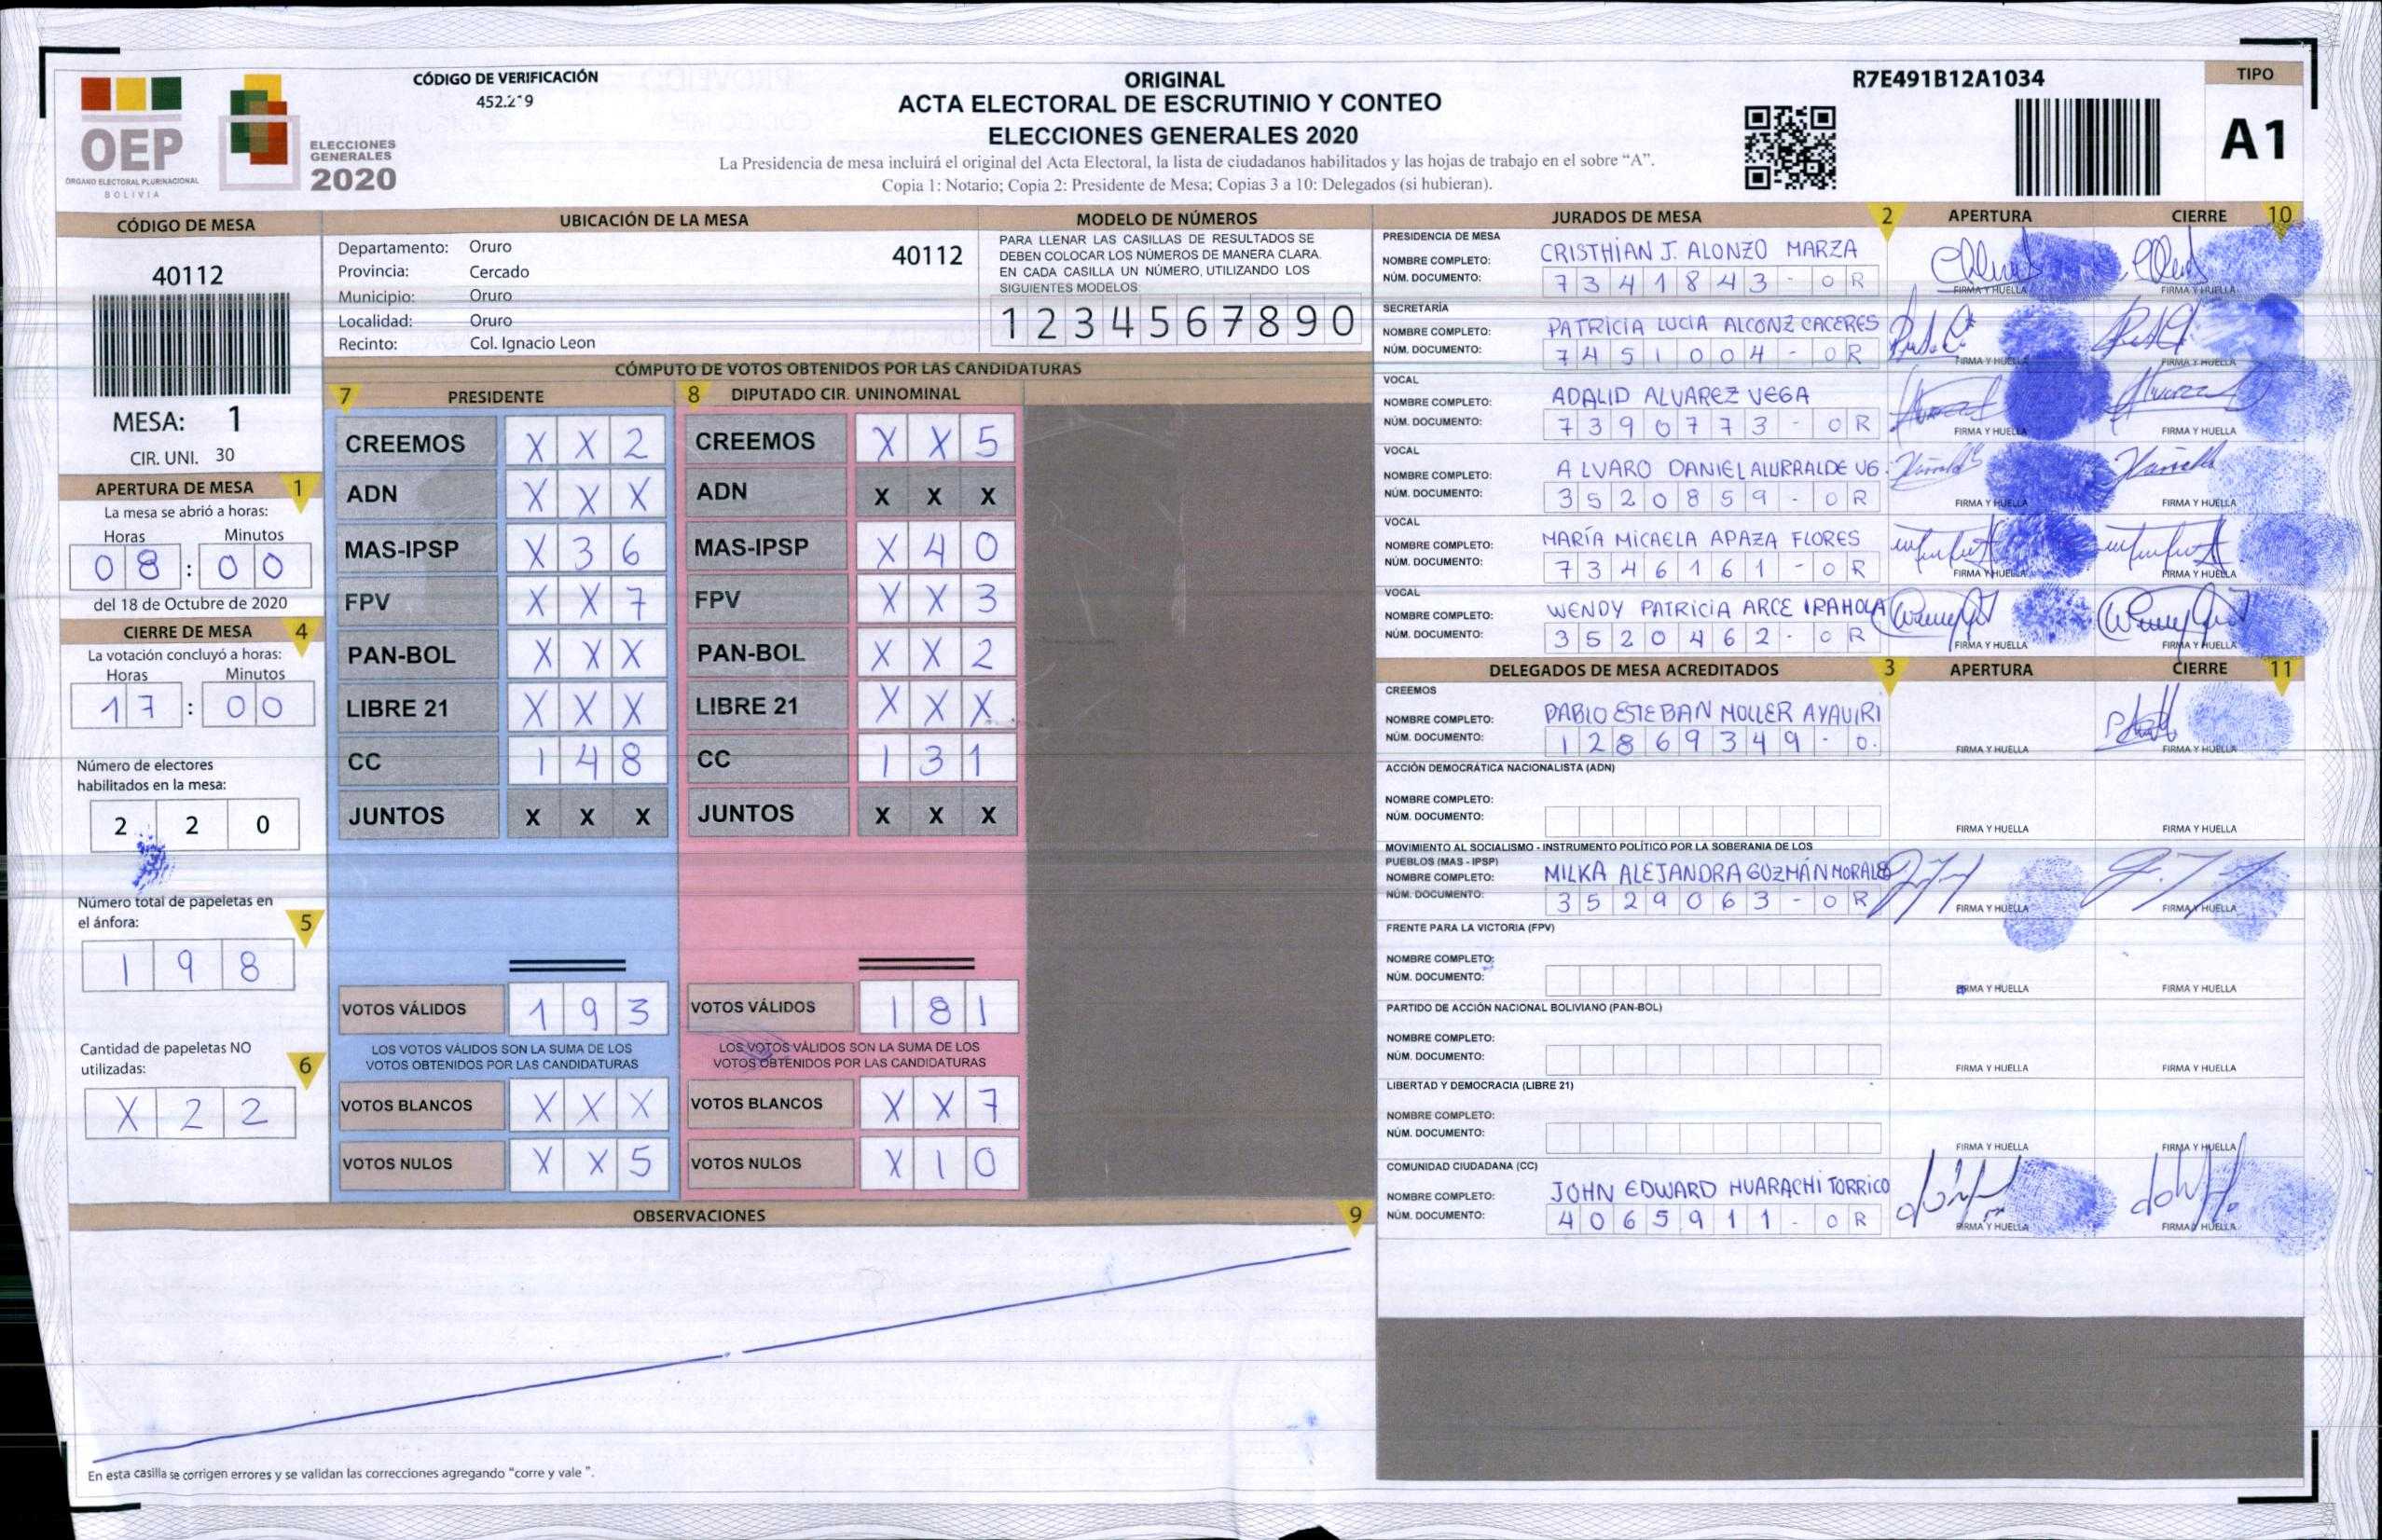 OEP
ÓRGANO ELECTORAL PLURINACIONAL
BOLIVIA
ELECCIONES
GENERALES
2020
CÓDIGO DE VERIFICACIÓN
ORIGINAL
ACTA ELECTORAL DE ESCRUTINIO Y CONTEO
ELECCIONES GENERALES 2020
La Presidencia de mesa incluirá el original del Acta Electoral, la lista de ciudadanos habilitados y las hojas de trabajo en el sobre “A”.
Copia 1: Notario; Copia 2: Presidente de Mesa; Copias 3 a 10: Delegados (si hubieran).
R7E491B12A1034
TIPO
A1
CÓDIGO DE MESA
40112
MESA: 1
CIR. UNI. 30
APERTURA DE MESA 1
La mesa se abrió a horas:
Horas Minutos
08 : 00
del 18 de Octubre de 2020
CIERRE DE MESA 4
La votación concluyó a horas:
Horas Minutos
17 : 00
Número de electores
habilitados en la mesa:
2 2 0
Número total de papeletas en
el ánfora: 5
1 9 8
Cantidad de papeletas NO
utilizadas: 6
X 2 2
UBICACIÓN DE LA MESA
Departamento: Oruro 40112
Provincia: Cercado
Municipio: Oruro
Localidad: Oruro
Recinto: Col. Ignacio Leon
MODELO DE NÚMEROS
PARA LLENAR LAS CASILLAS DE RESULTADOS SE
DEBEN COLOCAR LOS NÚMEROS DE MANERA CLARA.
EN CADA CASILLA UN NÚMERO, UTILIZANDO LOS
SIGUIENTES MODELOS
1 2 3 4 5 6 7 8 9 0
CÓMPUTO DE VOTOS OBTENIDOS POR LAS CANDIDATURAS
7 PRESIDENTE
CREEMOS X X 2
ADN X X X
MAS-IPSP X 3 6
FPV X X 7
PAN-BOL X X X
LIBRE 21 X X X
CC 1 4 8
JUNTOS X X X
VOTOS VÁLIDOS 1 9 3
LOS VOTOS VÁLIDOS SON LA SUMA DE LOS
VOTOS OBTENIDOS POR LAS CANDIDATURAS
VOTOS BLANCOS X X X
VOTOS NULOS X X 5
8 DIPUTADO CIR. UNINOMINAL
CREEMOS X X 5
ADN X X X
MAS-IPSP X 4 0
FPV X X 3
PAN-BOL X X 2
LIBRE 21 X X X
CC 1 3 1
JUNTOS X X X
VOTOS VÁLIDOS 1 8 1
LOS VOTOS VÁLIDOS SON LA SUMA DE LOS
VOTOS OBTENIDOS POR LAS CANDIDATURAS
VOTOS BLANCOS X X 7
VOTOS NULOS X 1 0
OBSERVACIONES 9
En esta casilla se corrigen errores y se validan las correcciones agregando “corre y vale ”.
JURADOS DE MESA 2 APERTURA CIERRE 10
PRESIDENCIA DE MESA
NOMBRE COMPLETO: CRISTHIAN J. ALONZO MARZA
NÚM. DOCUMENTO: 7341843-OR
FIRMA Y HUELLA FIRMA Y HUELLA
SECRETARÍA
NOMBRE COMPLETO: PATRICIA LUCIA ALCONZ CACERES
NÚM. DOCUMENTO: 7451004-OR
FIRMA Y HUELLA FIRMA Y HUELLA
VOCAL
NOMBRE COMPLETO: ADALID ALVAREZ VEGA
NÚM. DOCUMENTO: 7390773-OR
FIRMA Y HUELLA FIRMA Y HUELLA
VOCAL
NOMBRE COMPLETO: ALVARO DANIEL ALURRALDE
NÚM. DOCUMENTO: 3520859-OR
FIRMA Y HUELLA FIRMA Y HUELLA
VOCAL
NOMBRE COMPLETO: MARÍA MICAELA APAZA FLORES
NÚM. DOCUMENTO: 7346161-OR
FIRMA Y HUELLA FIRMA Y HUELLA
VOCAL
NOMBRE COMPLETO: WENDY PATRICIA ARCE IRAHOLA
NÚM. DOCUMENTO: 3520462-OR
FIRMA Y HUELLA FIRMA Y HUELLA
DELEGADOS DE MESA ACREDITADOS 3 APERTURA CIERRE 11
CREEMOS
NOMBRE COMPLETO: PABLO ESTEBAN MOLLER AYAVIRI
NÚM. DOCUMENTO: 12869349-O.
FIRMA Y HUELLA FIRMA Y HUELLA
ACCIÓN DEMOCRÁTICA NACIONALISTA (ADN)
NOMBRE COMPLETO:
NÚM. DOCUMENTO:
FIRMA Y HUELLA FIRMA Y HUELLA
MOVIMIENTO AL SOCIALISMO - INSTRUMENTO POLÍTICO POR LA SOBERANIA DE LOS
PUEBLOS (MAS - IPSP)
NOMBRE COMPLETO: MILKA ALEJANDRA GUZMÁN MORALES
NÚM. DOCUMENTO: 3529063-OR
FIRMA Y HUELLA FIRMA Y HUELLA
FRENTE PARA LA VICTORIA (FPV)
NOMBRE COMPLETO:
NÚM. DOCUMENTO:
FIRMA Y HUELLA FIRMA Y HUELLA
PARTIDO DE ACCIÓN NACIONAL BOLIVIANO (PAN-BOL)
NOMBRE COMPLETO:
NÚM. DOCUMENTO:
FIRMA Y HUELLA FIRMA Y HUELLA
LIBERTAD Y DEMOCRACIA (LIBRE 21)
NOMBRE COMPLETO:
NÚM. DOCUMENTO:
FIRMA Y HUELLA FIRMA Y HUELLA
COMUNIDAD CIUDADANA (CC)
NOMBRE COMPLETO: JOHN EDWARD HUARACHI TORRICO
NÚM. DOCUMENTO: 4065911-OR
FIRMA Y HUELLA FIRMA Y HUELLA